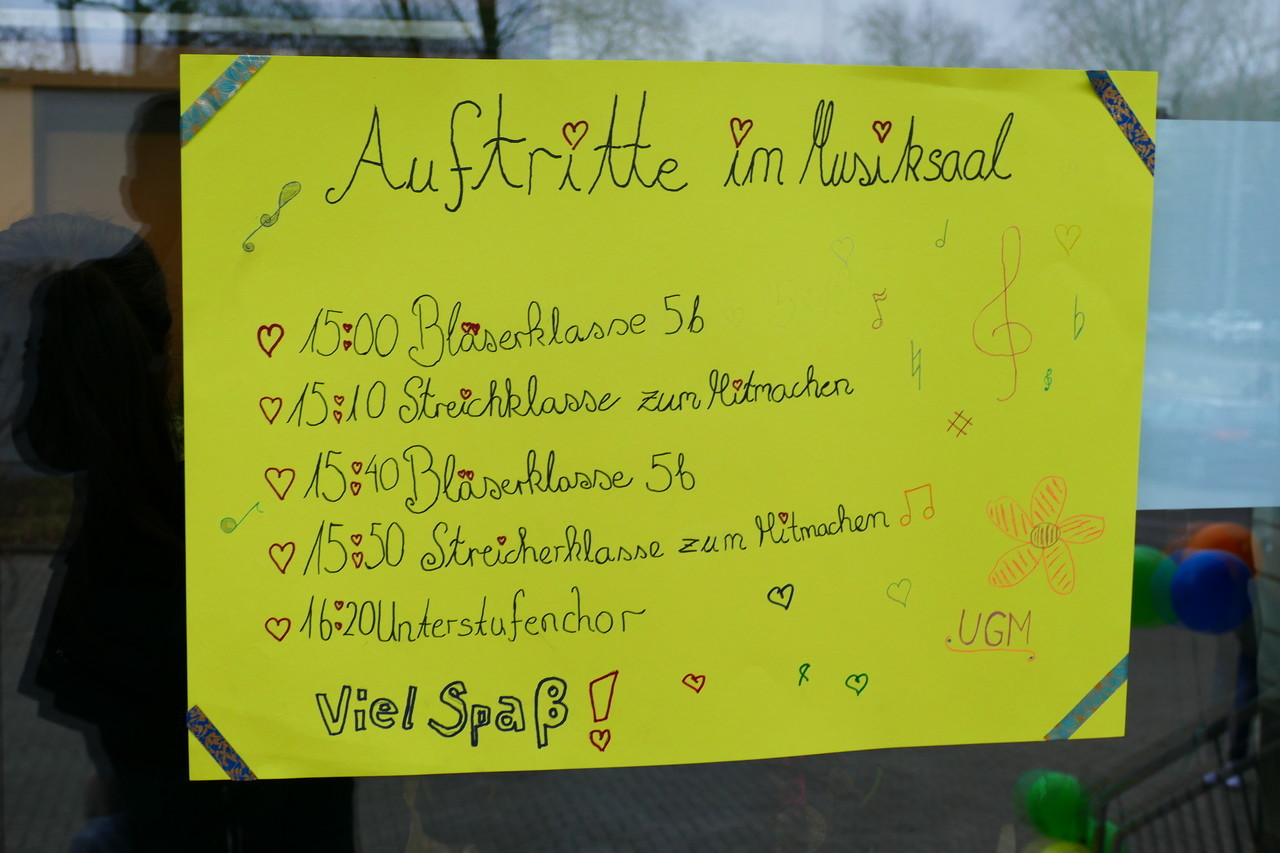 Auftritte im Musiksaal
15:00 Bläserklasse 5b
15:10 Streichklasse zum Mitmachen
15:40 Bläserklasse 5b
15:50 Streicherklasse zum Mitmachen
16:20 Unterstufenchor
UGM
Viel Spaß!